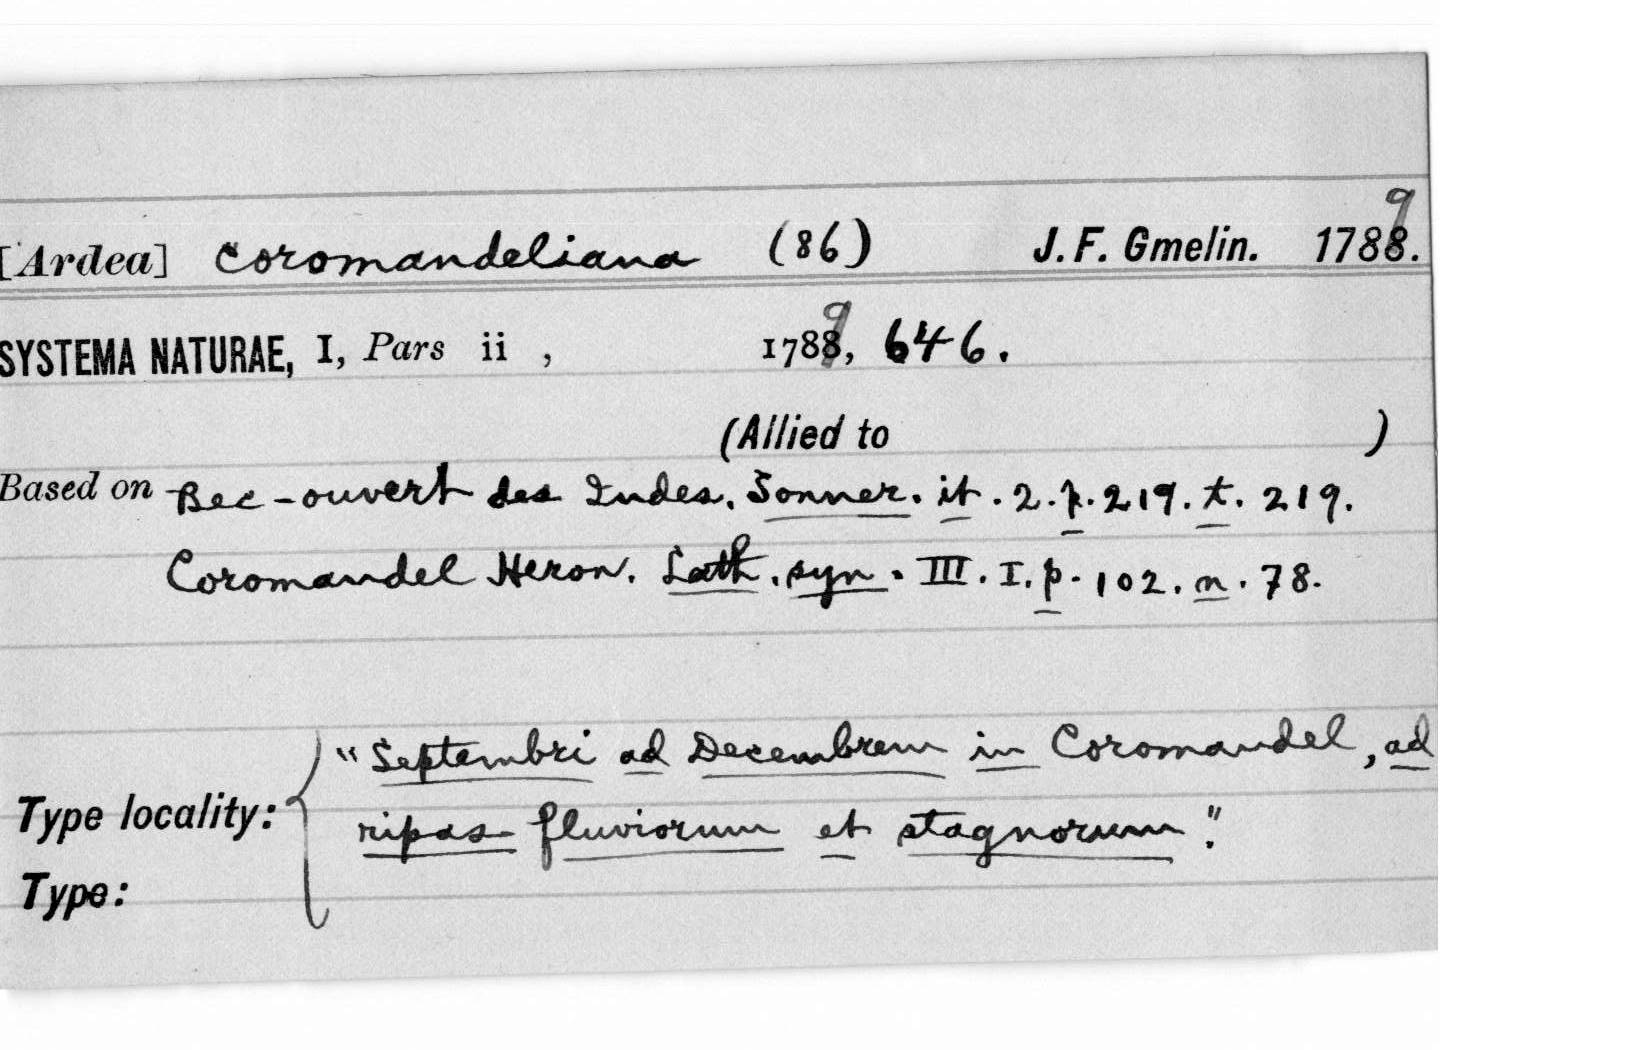 [Ardea] coromandeliana (86) J. F. Gmelin. 1789.
SYSTEMA NATURAE, I, Pars ii , 1789, 646.
(Allied to )
Based on Bec-ouvert des Indes. Sonner. it. 2. p. 219. t. 219.
Coromandel Heron. Lath. syn. III. I. p. 102. n. 78.
"Septembri ad Decembrem in Coromandel, ad
Type locality: ripas fluviorum et stagnorum".
Type: